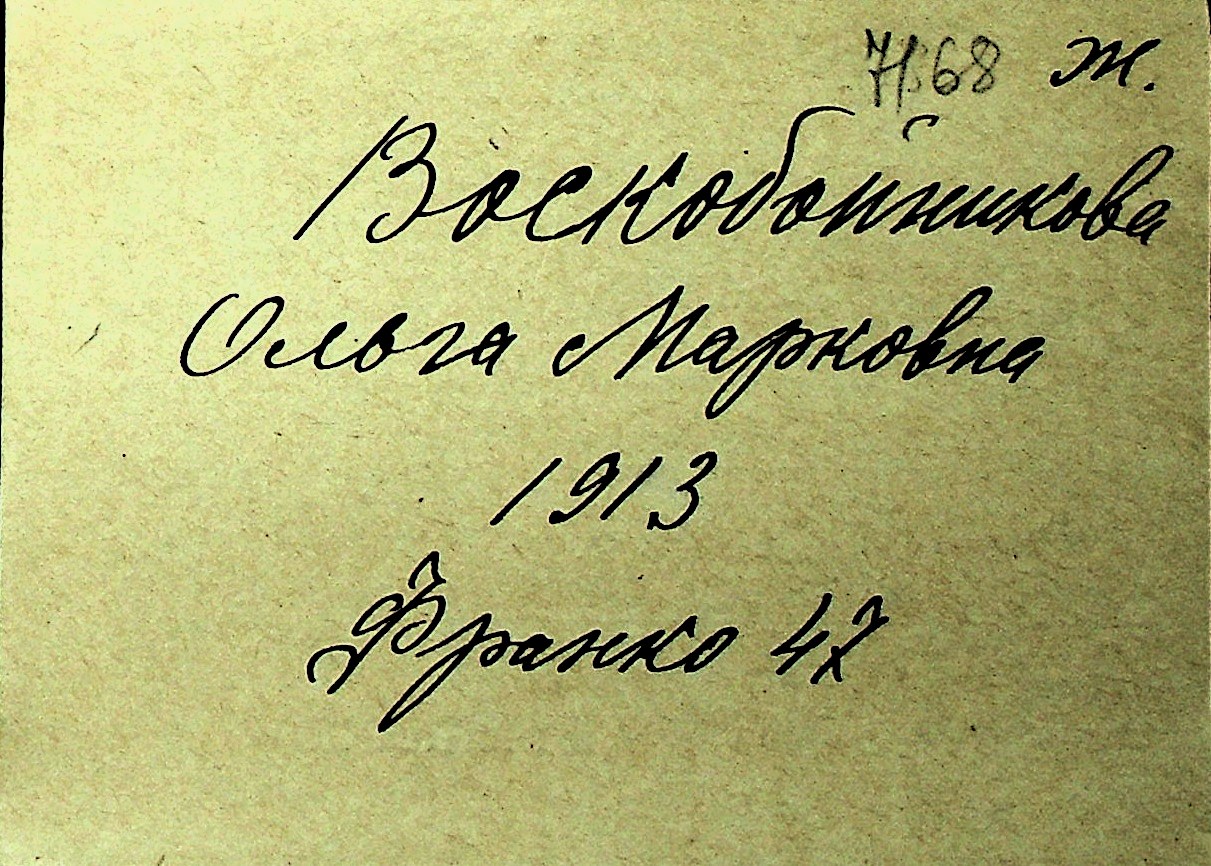 7168 ж.
Воскобойникова
Ольга Марковна
1913
Франко 47